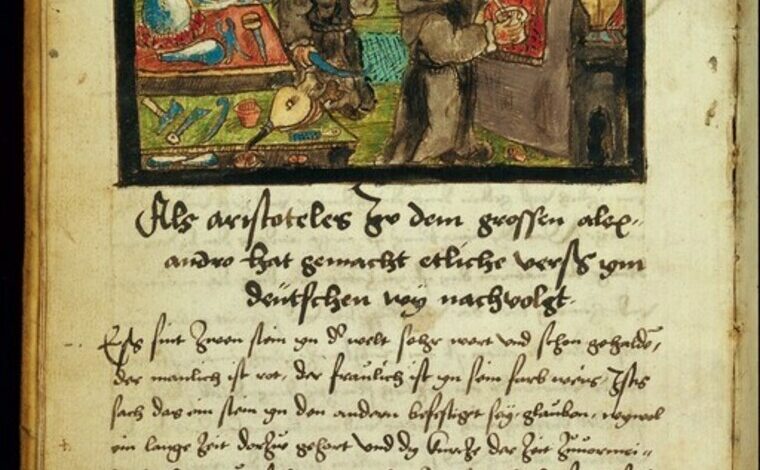 Als aristoteles zw dem grossen alex=
andro hat gemacht etliche verss ym
deütschen wy nachvolgt.
Ess sint zwen stein yn d' welt sehr wert vnd schon gehaldē,
der manlich ist rot, der fraulich ist yn sein farb weis. Ists
sach das ein stein yn den andern befestiget sey, glauben, wywol
ein lange zeit dorzw gehort vnd dy kurcze der zeit zuvormei=